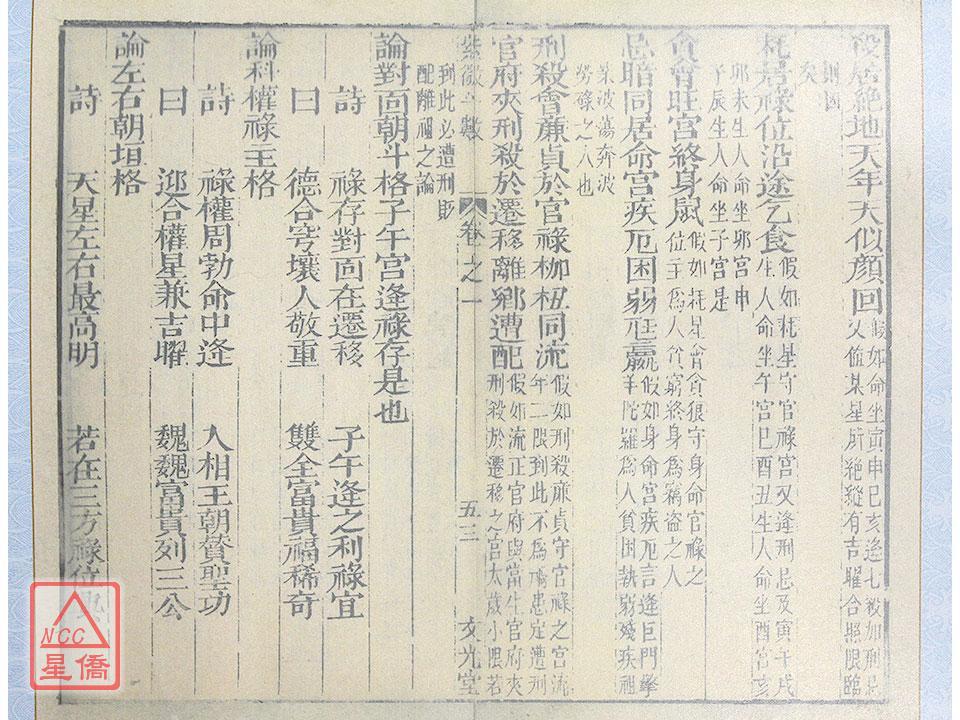 殺居絶地天年夭似顏回假如命坐寅申巳亥逢七殺加刑忌
又值某星所絶縱有吉曜合照限臨
則凶
矣
耗居祿位沿途乞食假如耗星守官祿宮又逢刑忌及寅午戌
生人命坐午宮巳酉丑生人命坐酉宮亥
卯未生人命坐卯宮申
子辰生人命坐子宮是
貪會旺宮終身鼠假如耗星會貪狼守身命官祿之
位主爲人貧窮終身爲竊盗之人
忌暗同居命宮疾厄困弱尫羸假如身命宮疾厄言逢巨門擎
羊陀羅爲人貧困執弱殘疾祖
業波蕩奔波
勞碌之人也
刑殺會廉貞於官祿枷杻同流假如刑殺廉貞守官祿之宮流
年二限到此不爲禍患定遭刑
官府夾刑殺於遷移離鄉遭配假如流正官府與當生官府夾
刑殺於遷移之宮太歲小限若
紫微斗數
卷之一
五三
文光堂
到此必遭刑貶
配離祖之論
論對面朝斗格子午宮逢祿存是也
詩 祿存對面在遷移 子午逢之利祿宜
曰 德合穹壤人敬重 雙全富貴福稀奇
論科權祿主格
詩 祿權周勃命中逢 入相王朝賛聖功
曰 迎合權星兼吉曜 巍巍富貴列三公
論左右朝垣格
詩 天星左右最高明 若在三方祿位
NCC
星僑